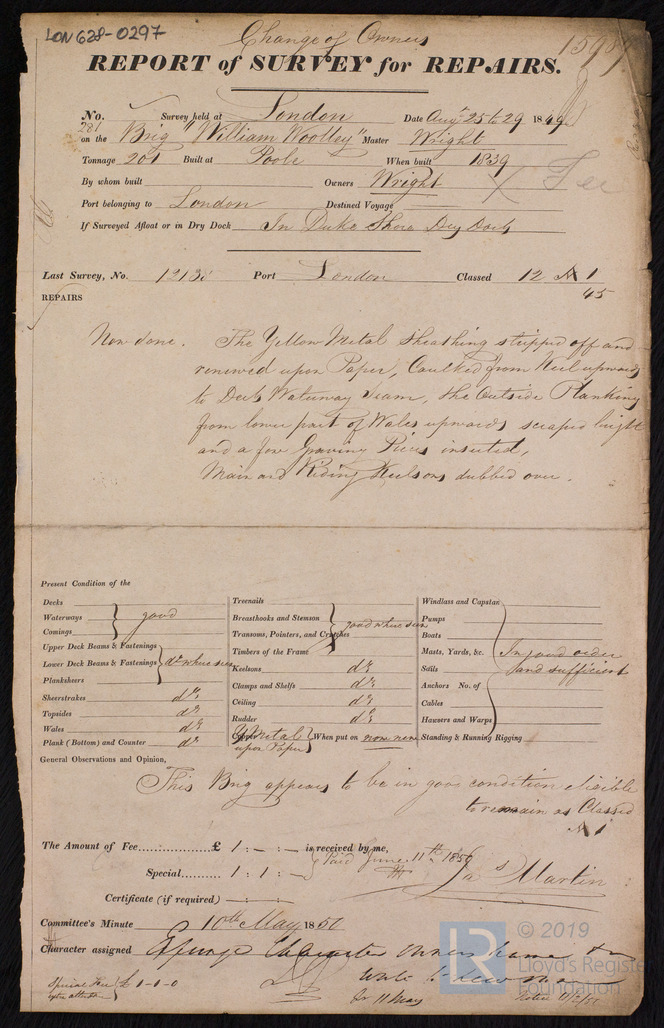 LON 628-0297
Change of Owners
REPORT of SURVEY for REPAIRS.
No. 281 Survey held at London Date Augt 25 to 29 1849
on the Brig "William Woolley" Master Wright
Tonnage 201 Built at Poole When built 1839
By whom built Owners Wright
Fee
Port belonging to London Destined Voyage
If Surveyed Afloat or in Dry Dock In Duke Shore Dry Dock
Last Survey, No. Port London Classed 12 A1
45
REPAIRS
Now done. The Yellow Metal Sheathing stripped off and
renewed upon Paper, Caulked from Keel upwards
to Deck Waterway Seam, the Outside Planking
from lower part of Wales upwards scraped bright
and a few Graving Pieces inserted,
Main and Riding Keelsons dubbed over.
Present Condition of the
Decks
Waterways good
Comings
Upper Deck Beams & Fastenings
Lower Deck Beams & Fastenings do where seen
Planksheers
Sheerstrakes do
Topsides do
Wales do
Plank (Bottom) and Counter do
Treenails
Breasthooks and Stemson good where seen
Transoms, Pointers, and Crutches
Timbers of the Frame
Keelsons do
Clamps and Shelfs do
Ceiling do
Rudder do
Copper Y Metal upon Paper When put on now new
Windlass and Capstan
Pumps
Boats
Masts, Yards, &c. In good order
Sails and sufficient
Anchors No. of
Cables
Hawsers and Warps
Standing & Running Rigging
General Observations and Opinion,
This Brig appears to be in good condition eligible
to remain as Classed
A1
The Amount of Fee £ 1 : - : - is received by me,
Paid June 11th 1850
Special 1 : 1 : -
Jas Martin
Certificate (if required) - : - :
Committee's Minute 10th May 1850
Character assigned Expunge Character owners name
Write
11 May
Special Fee £ 1-0-0
LR © 2019
Lloyd's Register
Foundation